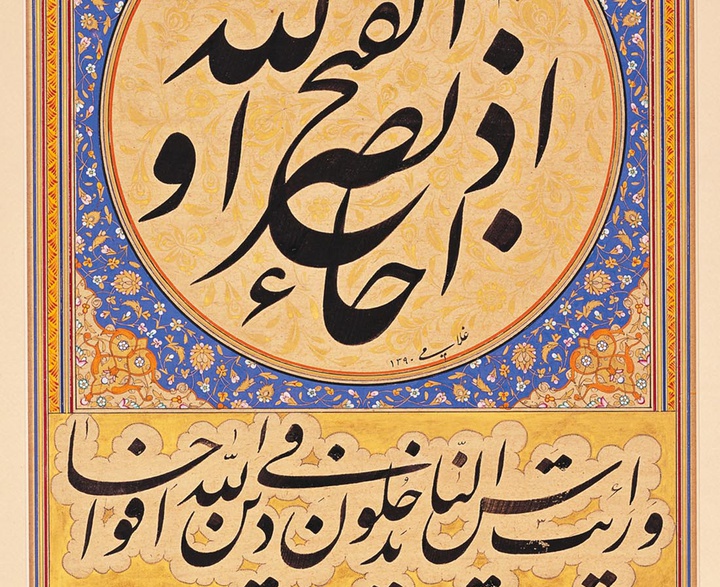 اذا جاء نصر الله و الفتح
غلامی ۱۳۹۰
و رأیت الناس یدخلون فی دین الله افواجا